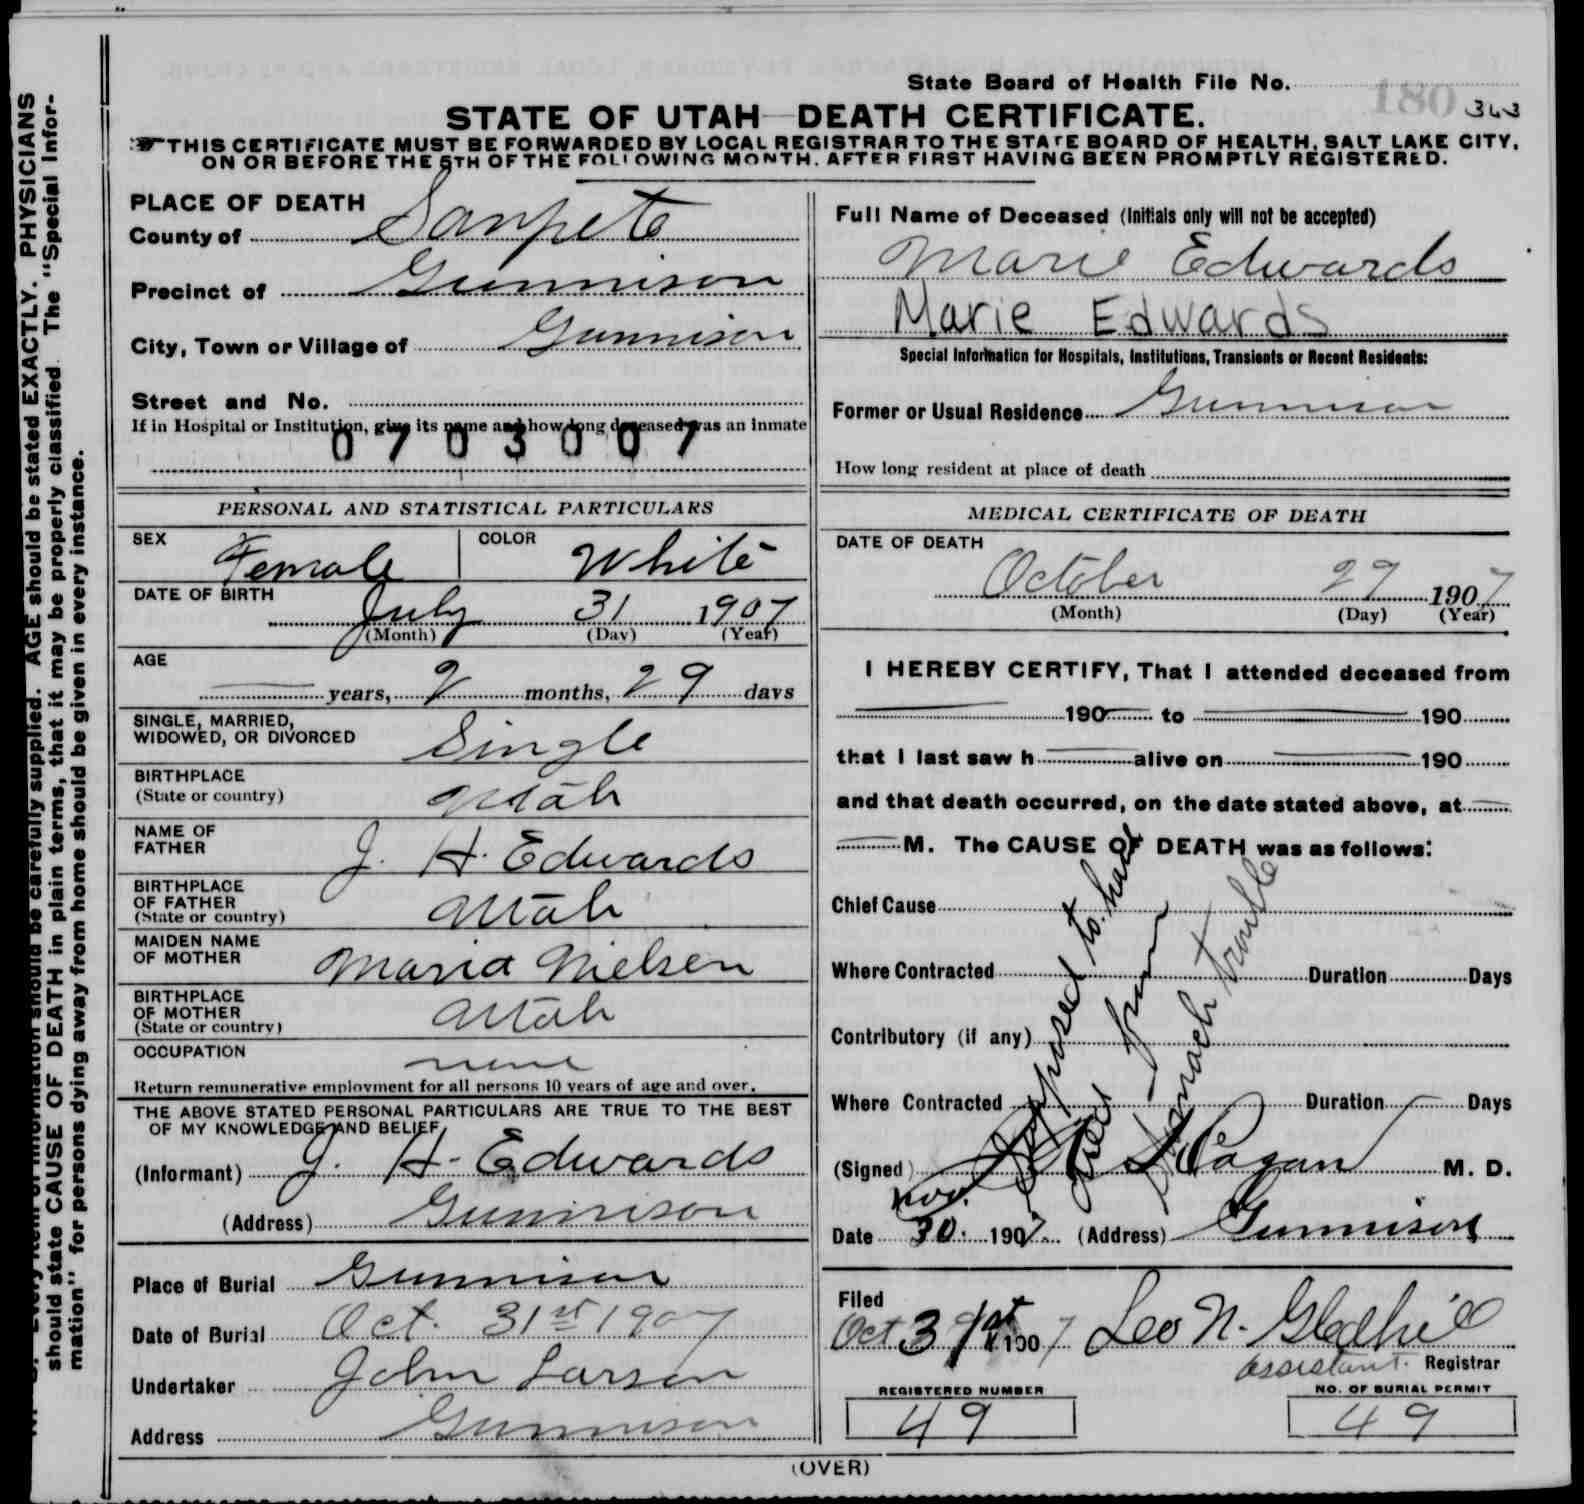 State Board of Health File No. 180 343
STATE OF UTAH—DEATH CERTIFICATE.
THIS CERTIFICATE MUST BE FORWARDED BY LOCAL REGISTRAR TO THE STATE BOARD OF HEALTH, SALT LAKE CITY,
ON OR BEFORE THE 5TH OF THE FOLLOWING MONTH, AFTER FIRST HAVING BEEN PROMPTLY REGISTERED.
should be carefully supplied. AGE should be stated EXACTLY. PHYSICIANS
should state CAUSE OF DEATH in plain terms, that it may be properly classified. The "Special Infor-
mation" for persons dying away from home should be given in every instance.
PLACE OF DEATH
County of Sanpete
Precinct of Gunnison
City, Town or Village of Gunnison
Street and No.
If in Hospital or Institution, give its name and how long deceased was an inmate
0703007
PERSONAL AND STATISTICAL PARTICULARS
SEX Female COLOR White
DATE OF BIRTH
July 31 1907
(Month) (Day) (Year)
AGE
— years, 2 months, 29 days
SINGLE, MARRIED,
WIDOWED, OR DIVORCED Single
BIRTHPLACE
(State or country) Utah
NAME OF
FATHER J. H. Edwards
BIRTHPLACE
OF FATHER
(State or country) Utah
MAIDEN NAME
OF MOTHER Maria Nielsen
BIRTHPLACE
OF MOTHER
(State or country) Utah
OCCUPATION none
Return remunerative employment for all persons 10 years of age and over.
THE ABOVE STATED PERSONAL PARTICULARS ARE TRUE TO THE BEST
OF MY KNOWLEDGE AND BELIEF
(Informant) J. H. Edwards
(Address) Gunnison
Place of Burial Gunnison
Date of Burial Oct. 31st 1907
Undertaker John Larson
Address Gunnison
Full Name of Deceased (Initials only will not be accepted)
Marie Edwards
Marie Edwards
Special Information for Hospitals, Institutions, Transients or Recent Residents:
Former or Usual Residence Gunnison
How long resident at place of death
MEDICAL CERTIFICATE OF DEATH
DATE OF DEATH
October 29 1907
(Month) (Day) (Year)
I HEREBY CERTIFY, That I attended deceased from
— 190 to — 190
that I last saw h — alive on — 190
and that death occurred, on the date stated above, at —
— M. The CAUSE OF DEATH was as follows:
Chief Cause
Where Contracted Duration Days
Contributory (if any)
Where Contracted Duration Days
Supposed to have
died from
stomach trouble
(Signed) M. D.
Nov.
Date 30. 1907 (Address) Gunnison
Filed
Oct 31st 1907 Leo N. Gledhill
assistant. Registrar
REGISTERED NUMBER
49
NO. OF BURIAL PERMIT
49
(OVER)